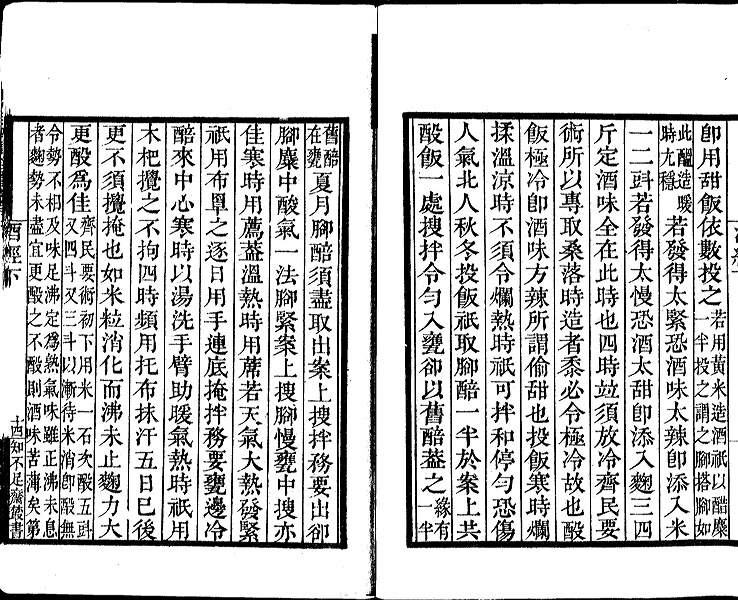 即用甜飯依數投之若用黃米造酒祇以醋麋一半投之謂之腳搭腳如
此醞造暖時尤穩若發得太緊恐酒味太辣即添入米
一二㪷若發得太慢恐酒太甜即添入麴三四
斤定酒味全在此時也四時竝須放冷齊民要
術所以專取桑落時造者黍必令極冷故也酘
飯極冷即酒味方辣所謂偷甜也投飯寒時爛
揉溫涼時不須令爛熱時祇可拌和停勻恐傷
人氣北人秋冬投飯祇取腳醅一半於案上共
酘飯一處搜拌令勻入甕卻以舊醅蓋之緣有一半
舊醅在甕夏月腳醅須盡取出案上搜拌務要出卻
腳麋中酸氣一法腳緊案上搜腳慢甕中搜亦
佳寒時用薦蓋溫熱時用蓆若天氣大熱發緊
祇用布罩之逐日用手連底掩拌務要甕邊冷
醅來中心寒時以湯洗手臂助暖氣熱時祇用
木杷攪之不拘四時頻用托布抹汗五日已後
更不須攪掩也如米粒消化而沸未止麴力大
更酘為佳齊民要術初下用米一石次酘五㪷又四㪷又三㪷以漸待米消即酘無
令勢不相及味足沸定為熟氣味雖正沸未息者麴勢未盡宜更酘之不酘則酒味苦薄矣第
酒經下
十四知不足齋叢書